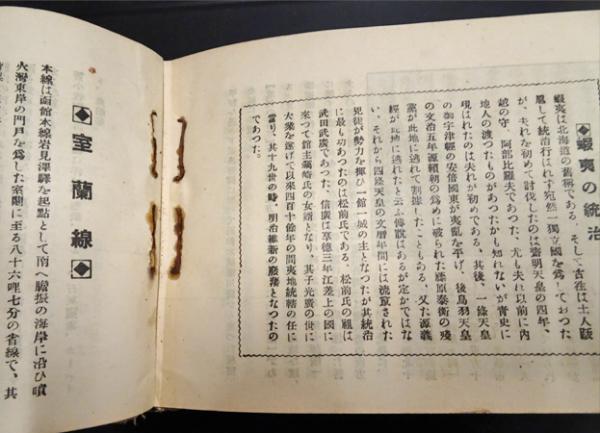 ◆蝦夷の統治
蝦夷は北海道の舊稱である、そして古往は土人跋
扈して統治行はれず宛然一獨立國を爲しておつた
が、夫れを初めて討伐したのは齋明天皇の四年、
越の守、阿部比羅夫であつた、尤も夫れ以前に内
地人の渡つたものがあつたかも知れないが靑史に
現はれたのは夫れが初めてである、其後、一條天皇
の御宇津輕の安倍國東が夷亂を平げ、後鳥羽天皇
の文治五年源賴朝の爲めに破られた藤原泰衡の殘
黨が此地に遁れて割據したこともある、又た源義
經が此地に遁れたと云ふ傳説はあるが定かではな
い、それから四條天皇の文曆年間には流竄された
兇徒が勢力を揮ひ一館一城の主となつたが其統治
に最も功あつたのは松前氏である、松前氏の祖は
武田武廣であつた、信廣は享德三年江差上の國に
來つて館主蠣崎氏の女婿となり、其子光廣の世に
大業を遂げて以來四百十餘年の間夷地統轄の任に
當り、其十九世の時、明治維新の廢藩となつたの
であつた。
◆室蘭線◆
本線は函館本線岩見澤驛を起點として南へ膽振の海岸に沿ひ噴
火灣東岸の門戸を爲した室蘭に至る八十六哩七分の省線で、其